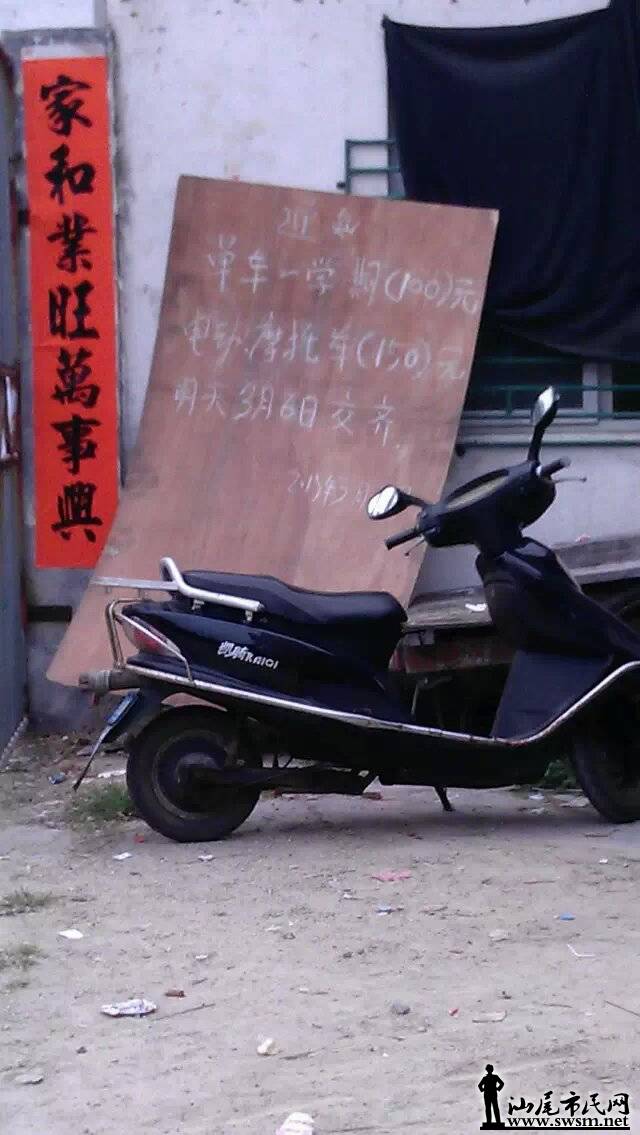 家和業旺萬事興
单车一学期(100)元
电动摩托车(150)元
明天3月6日交齐.
凯骑KAIQI
汕尾市民网
www.swsm.net